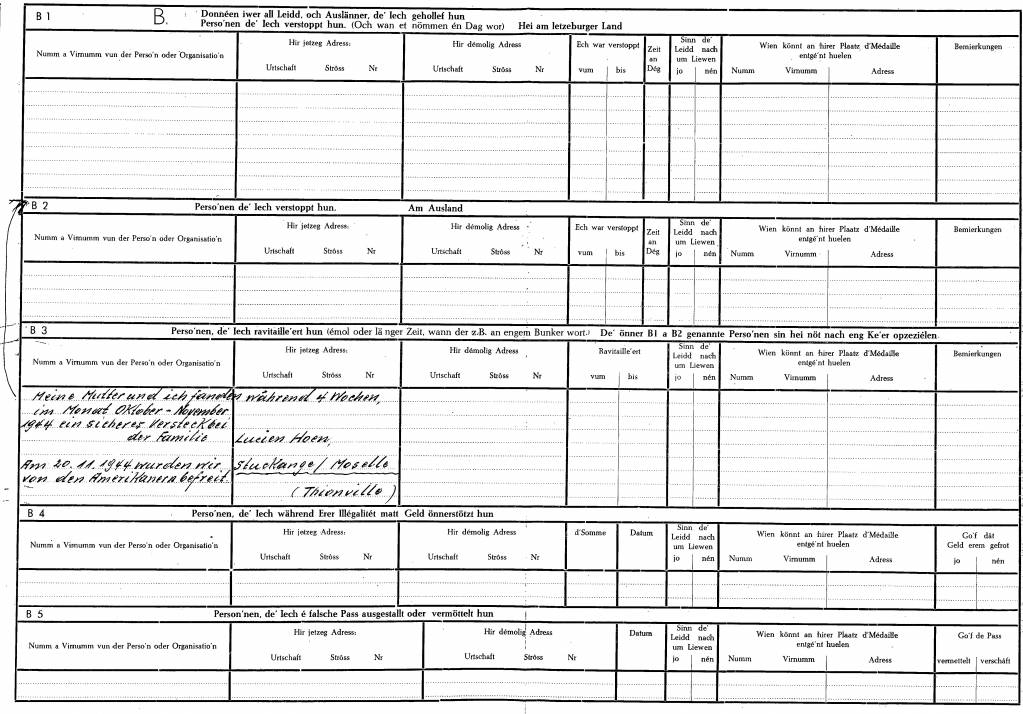 B 1
B.
Donnéen iwer all Leidd, och Auslänner, de' Iech gehollef hun
Perso'nen de' Iech verstoppt hun. (Och wan et nömmen én Dag wor) Hei am letzeburger Land
Numm a Virnumm vun der Perso'n oder Organisatio'n
Hir jetzeg Adress:
Urtschaft Ströss Nr
Hir démolig Adress
Urtschaft Ströss Nr
Ech war verstoppt
vum bis
Zeit
an
Dég
Sinn de'
Leidd nach
um Liewen
jo nén
Wien könnt an hirer Plaatz d'Médaille
entgé'nt huelen
Numm Virnumm Adress
Bemierkungen
B 2
Perso'nen de' Iech verstoppt hun. Am Ausland
Numm a Virnumm vun der Perso'n oder Organisatio'n
Hir jetzeg Adress:
Urtschaft Ströss Nr
Hir démolig Adress
Urtschaft Ströss Nr
Ech war verstoppt
vum bis
Zeit
an
Dég
Sinn de'
Leidd nach
um Liewen
jo nén
Wien könnt an hirer Plaatz d'Médaille
entgé'nt huelen
Numm Virnumm Adress
Bemierkungen
B 3
Perso'nen, de' Iech ravitaille'ert hun (émol oder länger Zeit, wann der z.B. an engem Bunker wort.) De' önner B1 a B2 genannte Perso'nen sin hei nöt nach eng Ke'er opzeziélen.
Numm a Virnumm vun der Perso'n oder Organisatio'n
Hir jetzeg Adress:
Urtschaft Ströss Nr
Hir démolig Adress
Urtschaft Ströss Nr
Ravitaille'ert
vum bis
Sinn de'
Leidd nach
um Liewen
jo nén
Wien könnt an hirer Plaatz d'Médaille
entgé'nt huelen
Numm Virnumm Adress
Bemierkungen
Meine Mutter und ich fanden während 4 Wochen,
im Monat Oktober - November
1944 ein sicheres Versteck bei
der Familie Lucien Hoen,
Am 20.11.1944 wurden wir Stuckange / Moselle
von den Amerikanern befreit.
(Thionville)
B 4
Perso'nen, de' Iech während Erer Illégalitét matt Geld önnerstötzt hun
Numm a Virnumm vun der Perso'n oder Organisatio'n
Hir jetzeg Adress:
Urtschaft Ströss Nr
Hir démolig Adress
Urtschaft Ströss Nr
d'Somme
Datum
Sinn de'
Leidd nach
um Liewen
jo nén
Wien könnt an hirer Plaatz d'Médaille
entgé'nt huelen
Numm Virnumm Adress
Go'f dât
Geld erem gefrot
jo nén
B 5
Person'nen, de' Iech é falsche Pass ausgestallt oder vermöttelt hun
Numm a Virnumm vun der Perso'n oder Organisatio'n
Hir jetzeg Adress:
Urtschaft Ströss Nr
Hir démolig Adress
Urtschaft Ströss Nr
Datum
Sinn de'
Leidd nach
um Liewen
jo nén
Wien könnt an hirer Plaatz d'Médaille
entgé'nt huelen
Numm Virnumm Adress
Go'f de Pass
vermettelt verschâft